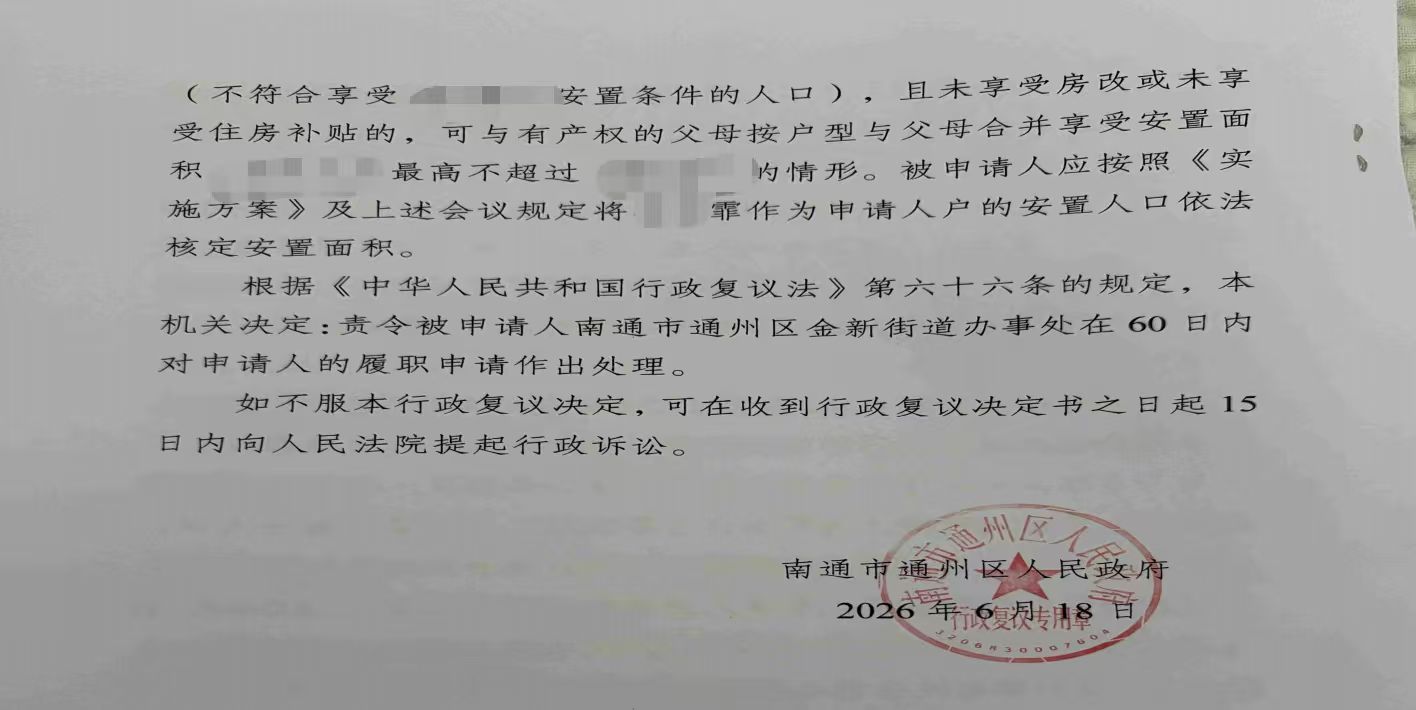 （不符合享受 安置条件的人口），且未享受房改或未享
受住房补贴的，可与有产权的父母按户型与父母合并享受安置面
积 最高不超过 的情形。被申请人应按照《实
施方案》及上述会议规定将 霏作为申请人户的安置人口依法
核定安置面积。
根据《中华人民共和国行政复议法》第六十六条的规定，本
机关决定：责令被申请人南通市通州区金新街道办事处在 60 日内
对申请人的履职申请作出处理。
如不服本行政复议决定，可在收到行政复议决定书之日起 15
日内向人民法院提起行政诉讼。
南通市通州区人民政府
2026 年 6 月 18 日
南通市通州区人民政府
行政复议专用章
3206830007604